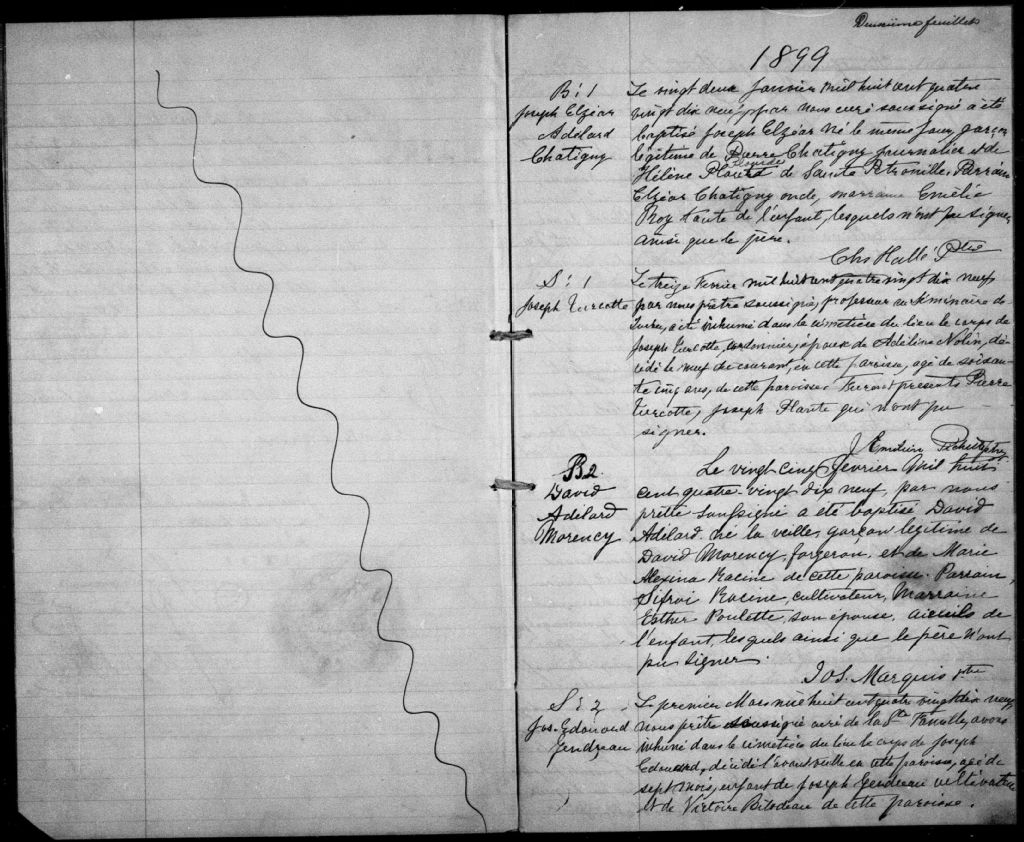 Deuxième feuillet
1899
B: 1
Joseph Elzéar
Adélard
Chatigny
Le vingt deux Janvier mil huit cent quatre
vingt dix neuf par nous curé soussigné a été
baptisé Joseph Elzéar né le même jour, garçon
légitime de Pierre Chatigny journalier et de
Hélène Plante de Sainte Pétronille. Parrain
Elzéar Chatigny oncle, marraine Emélie
Roy tante de l'enfant, lesquels n'ont pu signer
ainsi que le père.
Chs Hallé Ptre
S: 1
Joseph Turcotte
Le treize Fevrier mil huit cent quatre vingt dix neuf
par nous prêtre soussigné, professeur au Séminaire de
a été inhumé dans le cimetière du lieu le corps de
Joseph Turcotte, cordonnier, époux de Adéline Nolin, dé-
cédé le neuf du courant, en cette paroisse, agé de soixan-
te cinq ans, de cette paroisse. Furent présents Pierre
Turcotte, Joseph Plante qui n'ont pu
signer.
J Emilien
B2.
David
Adélard
Morency
Le vingt cinq fevrier Mil huit
cent quatre-vingt dix neuf, par nous
prêtre soussigné a été baptisé David
Adélard né la veille, garçon légitime de
David Morency, forgeron, et de Marie
Alexina Racine de cette paroisse. Parrain,
Sifroi Racine, cultivateur, Marraine
Esther Poulette, son épouse, aieuls de
l'enfant, lesquels ainsi que le père n'ont
pu signer.
Jos. Marquis ptre
S: 2
Jos. Edouard
Gendreau
Le premier Mars mil huit cent quatre vingt dix neuf
nous prêtre soussigné curé de la Ste Famille, avons
inhumé dans le cimetière du lieu le corps de Joseph
Edouard, décédé l'avant veille en cette paroisse, agé de
sept mois, enfant de Joseph Gendreau cultivateur
et de Victoire Bilodeau de cette paroisse.